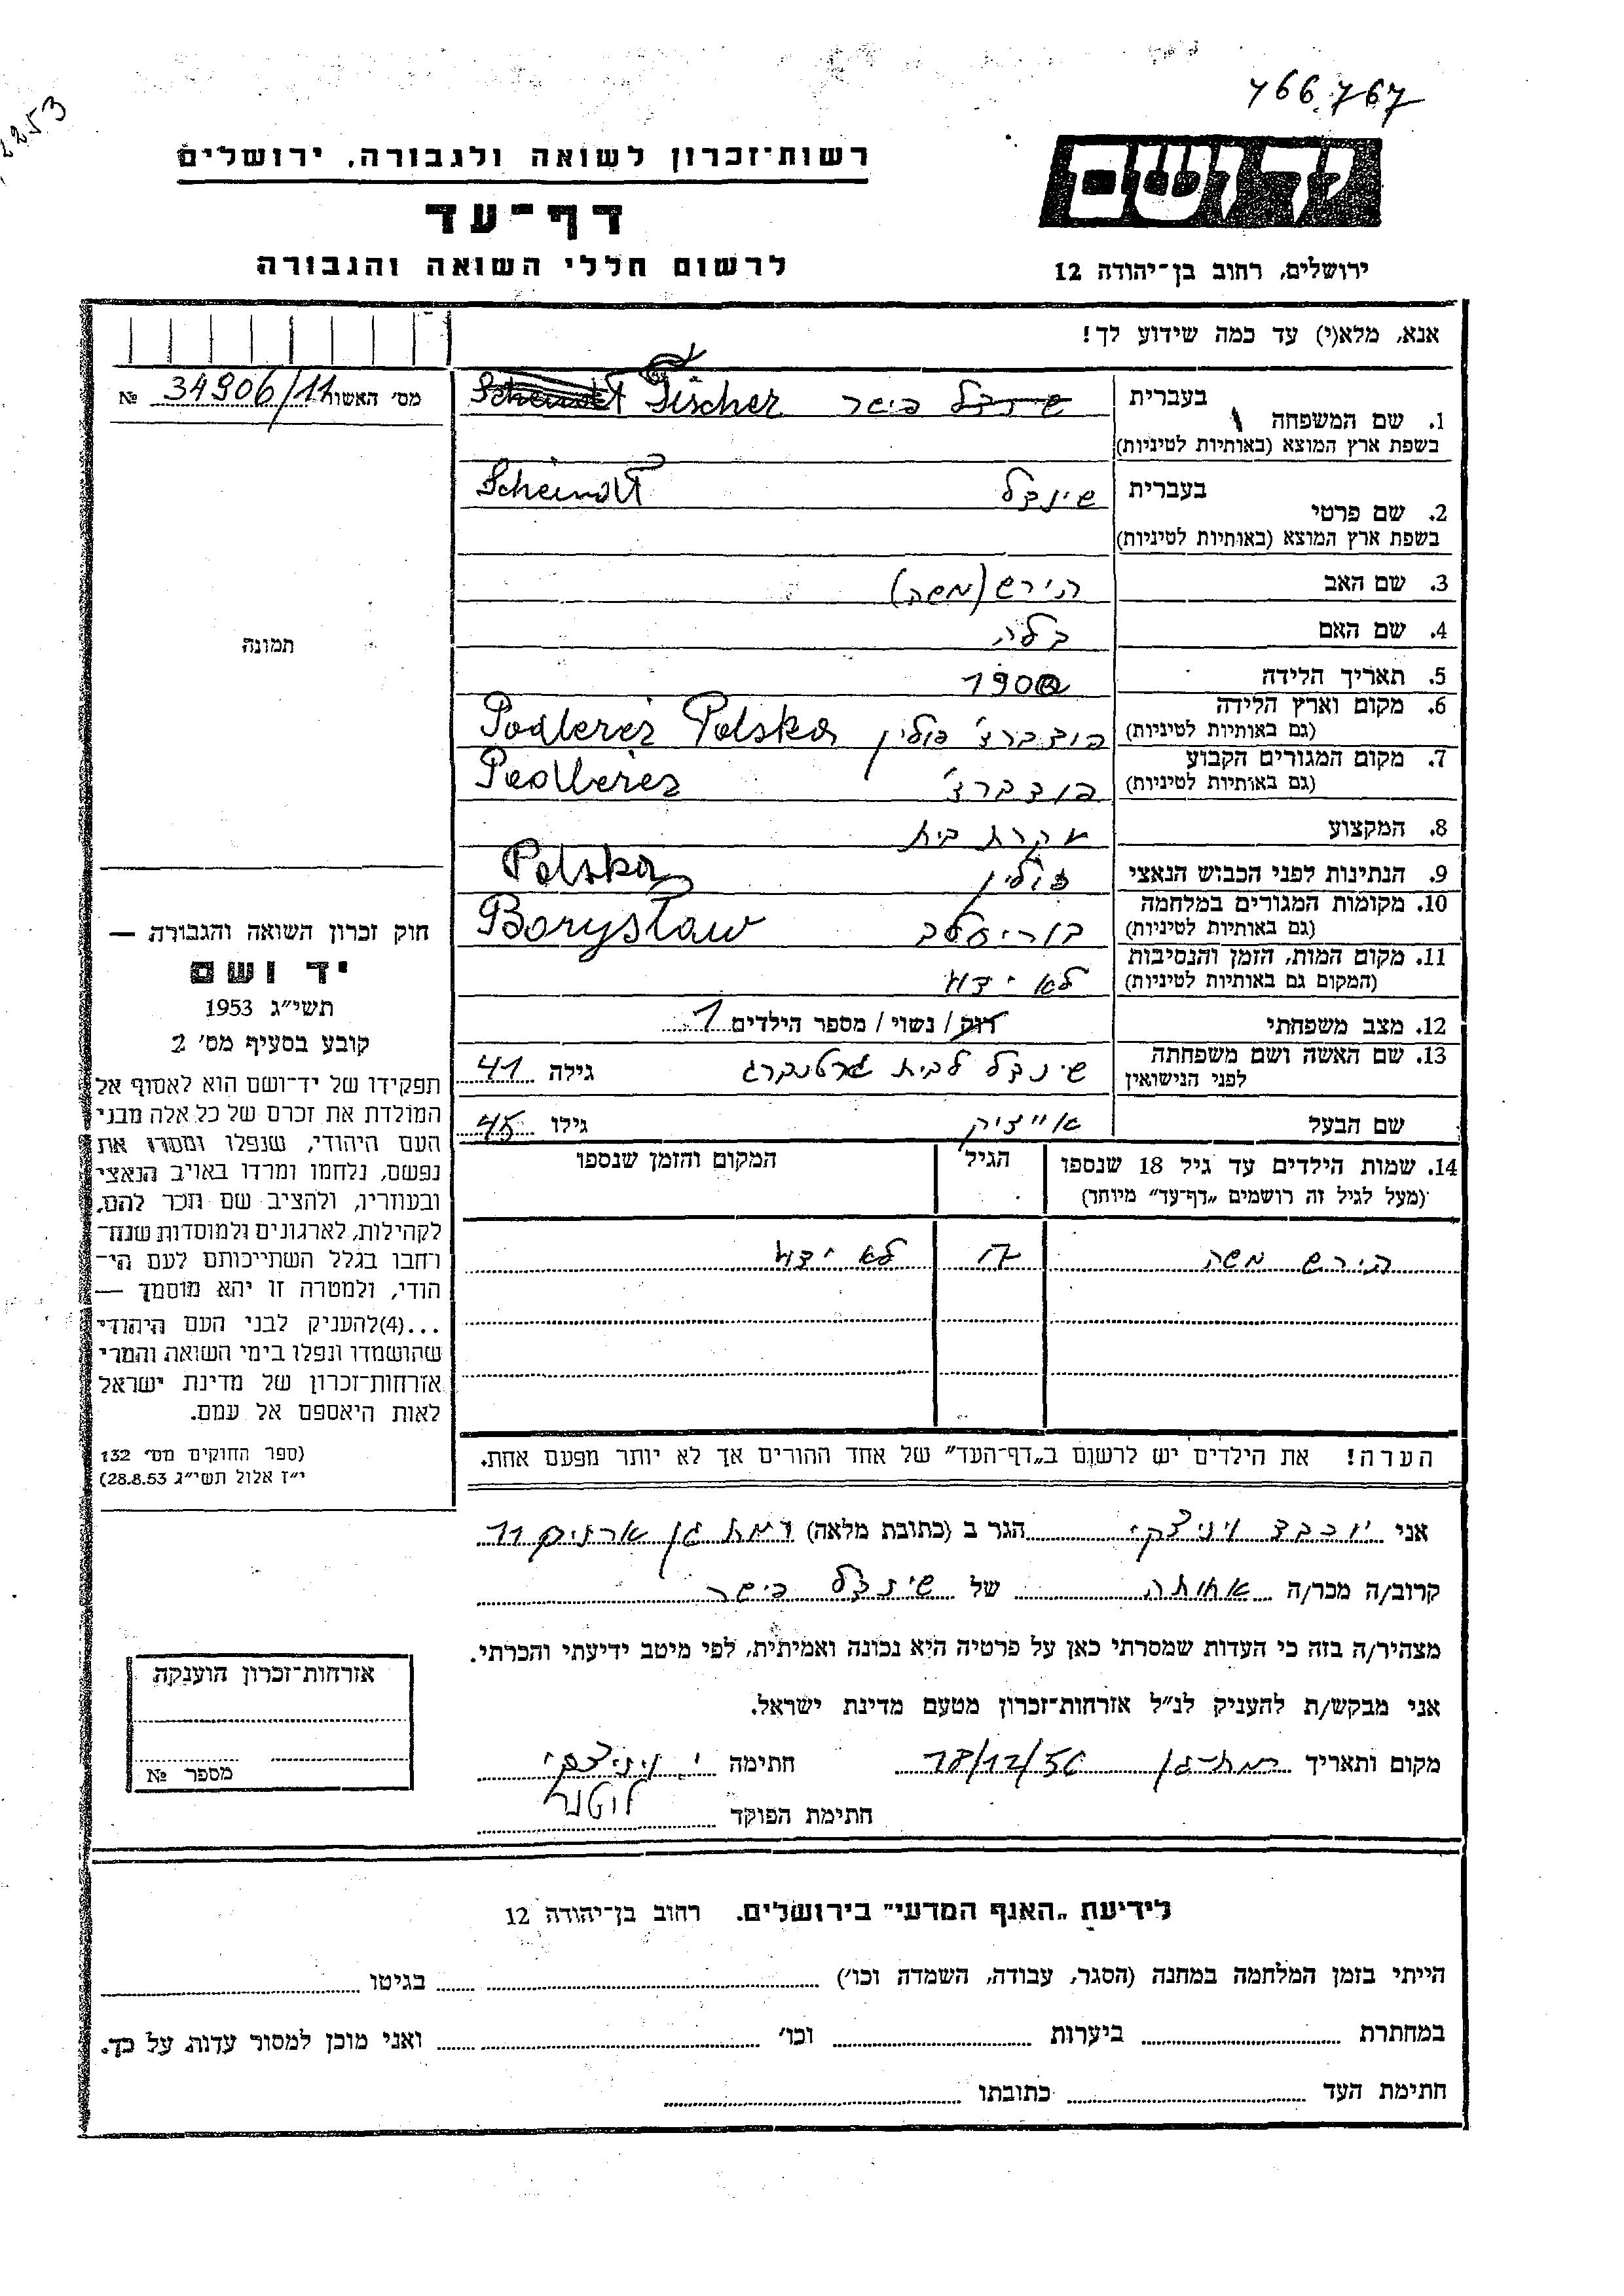 766767
2253
רשות־זכרון לשואה ולגבורה, ירושלים
דף־עד
לרשום חללי השואה והגבורה
יד ושם
ירושלים, רחוב בן־יהודה 12
אנא, מלא(י) עד כמה שידוע לך!
מס׳ האשור 34906/11 №
1. שם המשפחה בעברית פישר Fischer
בשפת ארץ המוצא (באותיות לטיניות)
2. שם פרטי בעברית שינדל Scheindl
בשפת ארץ המוצא (באותיות לטיניות)
3. שם האב הירש (משה)
4. שם האם בלה
5. תאריך הלידה 1900
6. מקום וארץ הלידה פודברז׳ פולין Podbereż Polska
(גם באותיות לטיניות)
7. מקום המגורים הקבוע פודברז׳ Podbereż
(גם באותיות לטיניות)
8. המקצוע עקרת בית
9. הנתינות לפני הכבוש הנאצי פולין Polska
10. מקומות המגורים במלחמה בוריסלב Borysław
(גם באותיות לטיניות)
11. מקום המות, הזמן והנסיבות לא ידוע
(המקום גם באותיות לטיניות)
12. מצב משפחתי רווק / נשוי / מספר הילדים 1
13. שם האשה ושם משפחתה שינדל לבית גרטנברג גילה 41
לפני הנישואין
שם הבעל אייזיק גילו 45
14. שמות הילדים עד גיל 18 שנספו הגיל המקום והזמן שנספו
(מעל לגיל זה רושמים „דף־עד״ מיוחד)
הירש משה 17 לא ידוע
הערה! את הילדים יש לרשום ב„דף־העד״ של אחד ההורים אך לא יותר מפעם אחת.
תמונה
חוק זכרון השואה והגבורה —
יד ושם
תשי״ג 1953
קובע בסעיף מס׳ 2
תפקידו של יד־ושם הוא לאסוף אל
המולדת את זכרם של כל אלה מבני
העם היהודי, שנפלו ומסרו את
נפשם, נלחמו ומרדו באויב הנאצי
ובעוזריו, ולהציב שם וזכר להם,
לקהילות, לארגונים ולמוסדות שנח־
רחבו בגלל השתייכותם לעם הי־
הודי, ולמטרה זו יהא מוסמך —
...(4)להעניק לבני העם היהודי
שהושמדו ונפלו בימי השואה והמרי
אזרחות־זכרון של מדינת ישראל
לאות היאספם אל עמם.
(ספר החוקים מס׳ 132
י״ז אלול תשי״ג 28.8.53)
אני יוכבד ויניצקי הגר ב (כתובת מלאה) רמת גן 11
קרוב/ה מכר/ה אחותה של שינדל פישר
מצהיר/ה בזה כי העדות שמסרתי כאן על פרטיה היא נכונה ואמיתית, לפי מיטב ידיעתי והכרתי.
אני מבקש/ת להעניק לנ״ל אזרחות־זכרון מטעם מדינת ישראל.
מקום ותאריך רמת־גן 18/12/56 חתימה י. ויניצקי
חתימת הפוקד
אזרחות־זכרון הוענקה
מספר №
לידיעת „האגף המדעי״ בירושלים. רחוב בן־יהודה 12
הייתי בזמן המלחמה במחנה (הסגר, עבודה, השמדה וכו׳) בגיטו
במחתרת ביערות וכו׳ ואני מוכן למסור עדות על כך.
חתימת העד כתובתו